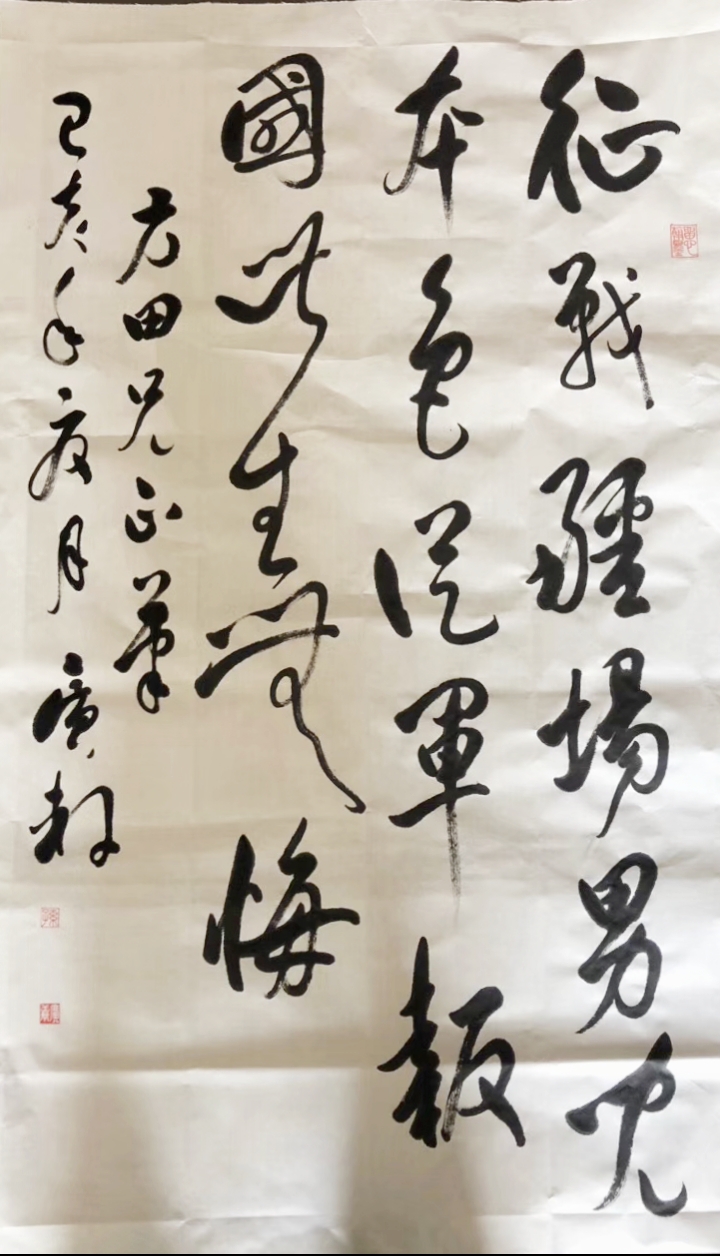 征戰疆場男兒
本色從軍報
國此生無悔
田兄正筆
己亥年夏月 廣